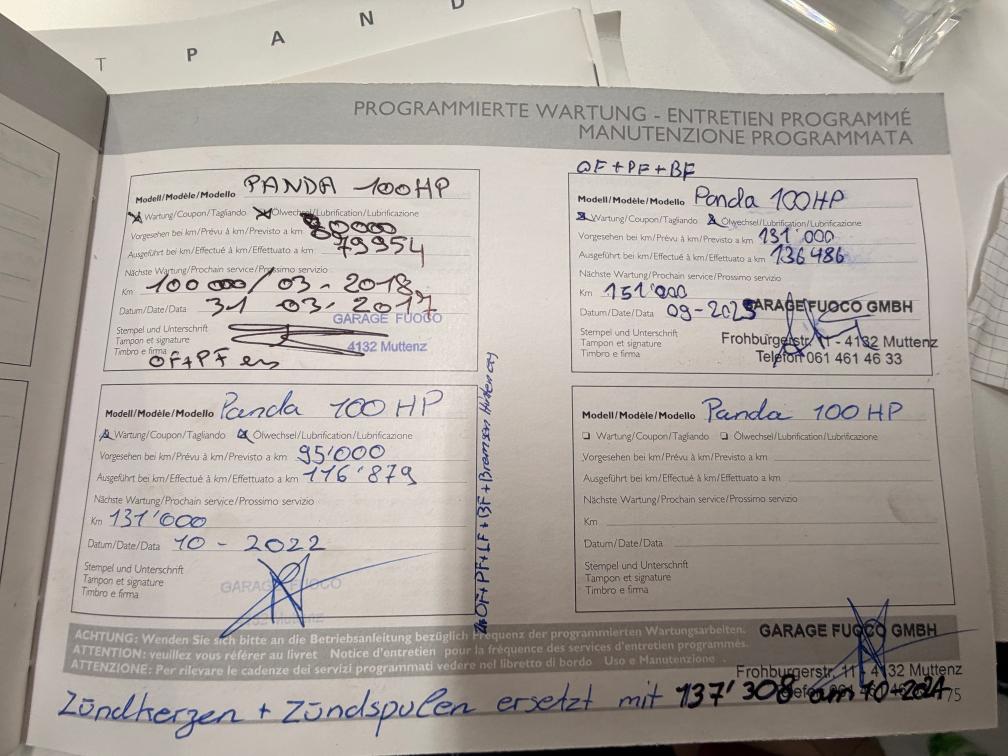 T P A N D
PROGRAMMIERTE WARTUNG - ENTRETIEN PROGRAMMÉ
MANUTENZIONE PROGRAMMATA
Modell/Modèle/Modello PANDA 100HP
Wartung/Coupon/Tagliando Ölwechsel/Lubrification/Lubrificazione
Vorgesehen bei km/Prévu à km/Previsto a km 80000
Ausgeführt bei km/Effectué à km/Effettuato a km 79954
Nächste Wartung/Prochain service/Prossimo servizio
Km 100 000/03-2018
Datum/Date/Data 31 03-2017
GARAGE FUOCO
Stempel und Unterschrift
Tampon et signature
Timbro e firma
4132 Muttenz
OF+PF
Modell/Modèle/Modello Panda 100 HP
Wartung/Coupon/Tagliando Ölwechsel/Lubrification/Lubrificazione
Vorgesehen bei km/Prévu à km/Previsto a km 95'000
Ausgeführt bei km/Effectué à km/Effettuato a km 116'879
Nächste Wartung/Prochain service/Prossimo servizio
Km 131'000
Datum/Date/Data 10-2022
Stempel und Unterschrift
Tampon et signature
Timbro e firma
GARAGE FUOCO
Muttenz
OF+PF+LF+BF+Bremsen
OF+PF+BF
Modell/Modèle/Modello Panda 100HP
Wartung/Coupon/Tagliando Ölwechsel/Lubrification/Lubrificazione
Vorgesehen bei km/Prévu à km/Previsto a km 131'000
Ausgeführt bei km/Effectué à km/Effettuato a km 136486
Nächste Wartung/Prochain service/Prossimo servizio
Km 151'000
Datum/Date/Data 09-2023
GARAGE FUOCO GMBH
Stempel und Unterschrift
Tampon et signature
Timbro e firma
Frohburgerstr. 11 - 4132 Muttenz
Telefon 061 461 46 33
Modell/Modèle/Modello Panda 100 HP
Wartung/Coupon/Tagliando Ölwechsel/Lubrification/Lubrificazione
Vorgesehen bei km/Prévu à km/Previsto a km
Ausgeführt bei km/Effectué à km/Effettuato a km
Nächste Wartung/Prochain service/Prossimo servizio
Km
Datum/Date/Data
Stempel und Unterschrift
Tampon et signature
Timbro e firma
ACHTUNG: Wenden Sie sich bitte an die Betriebsanleitung bezüglich Frequenz der programmierten Wartungsarbeiten.
ATTENTION: veuillez vous référer au livret Notice d'entretien pour la fréquence des services d'entretien programmés.
ATTENZIONE: Per rilevare le cadenze dei servizi programmati vedere nel libretto di bordo Uso e Manutenzione .
GARAGE FUOCO GMBH
Frohburgerstr. 11 - 4132 Muttenz
Zündkerzen + Zündspulen ersetzt mit 137'308 am 10-2024